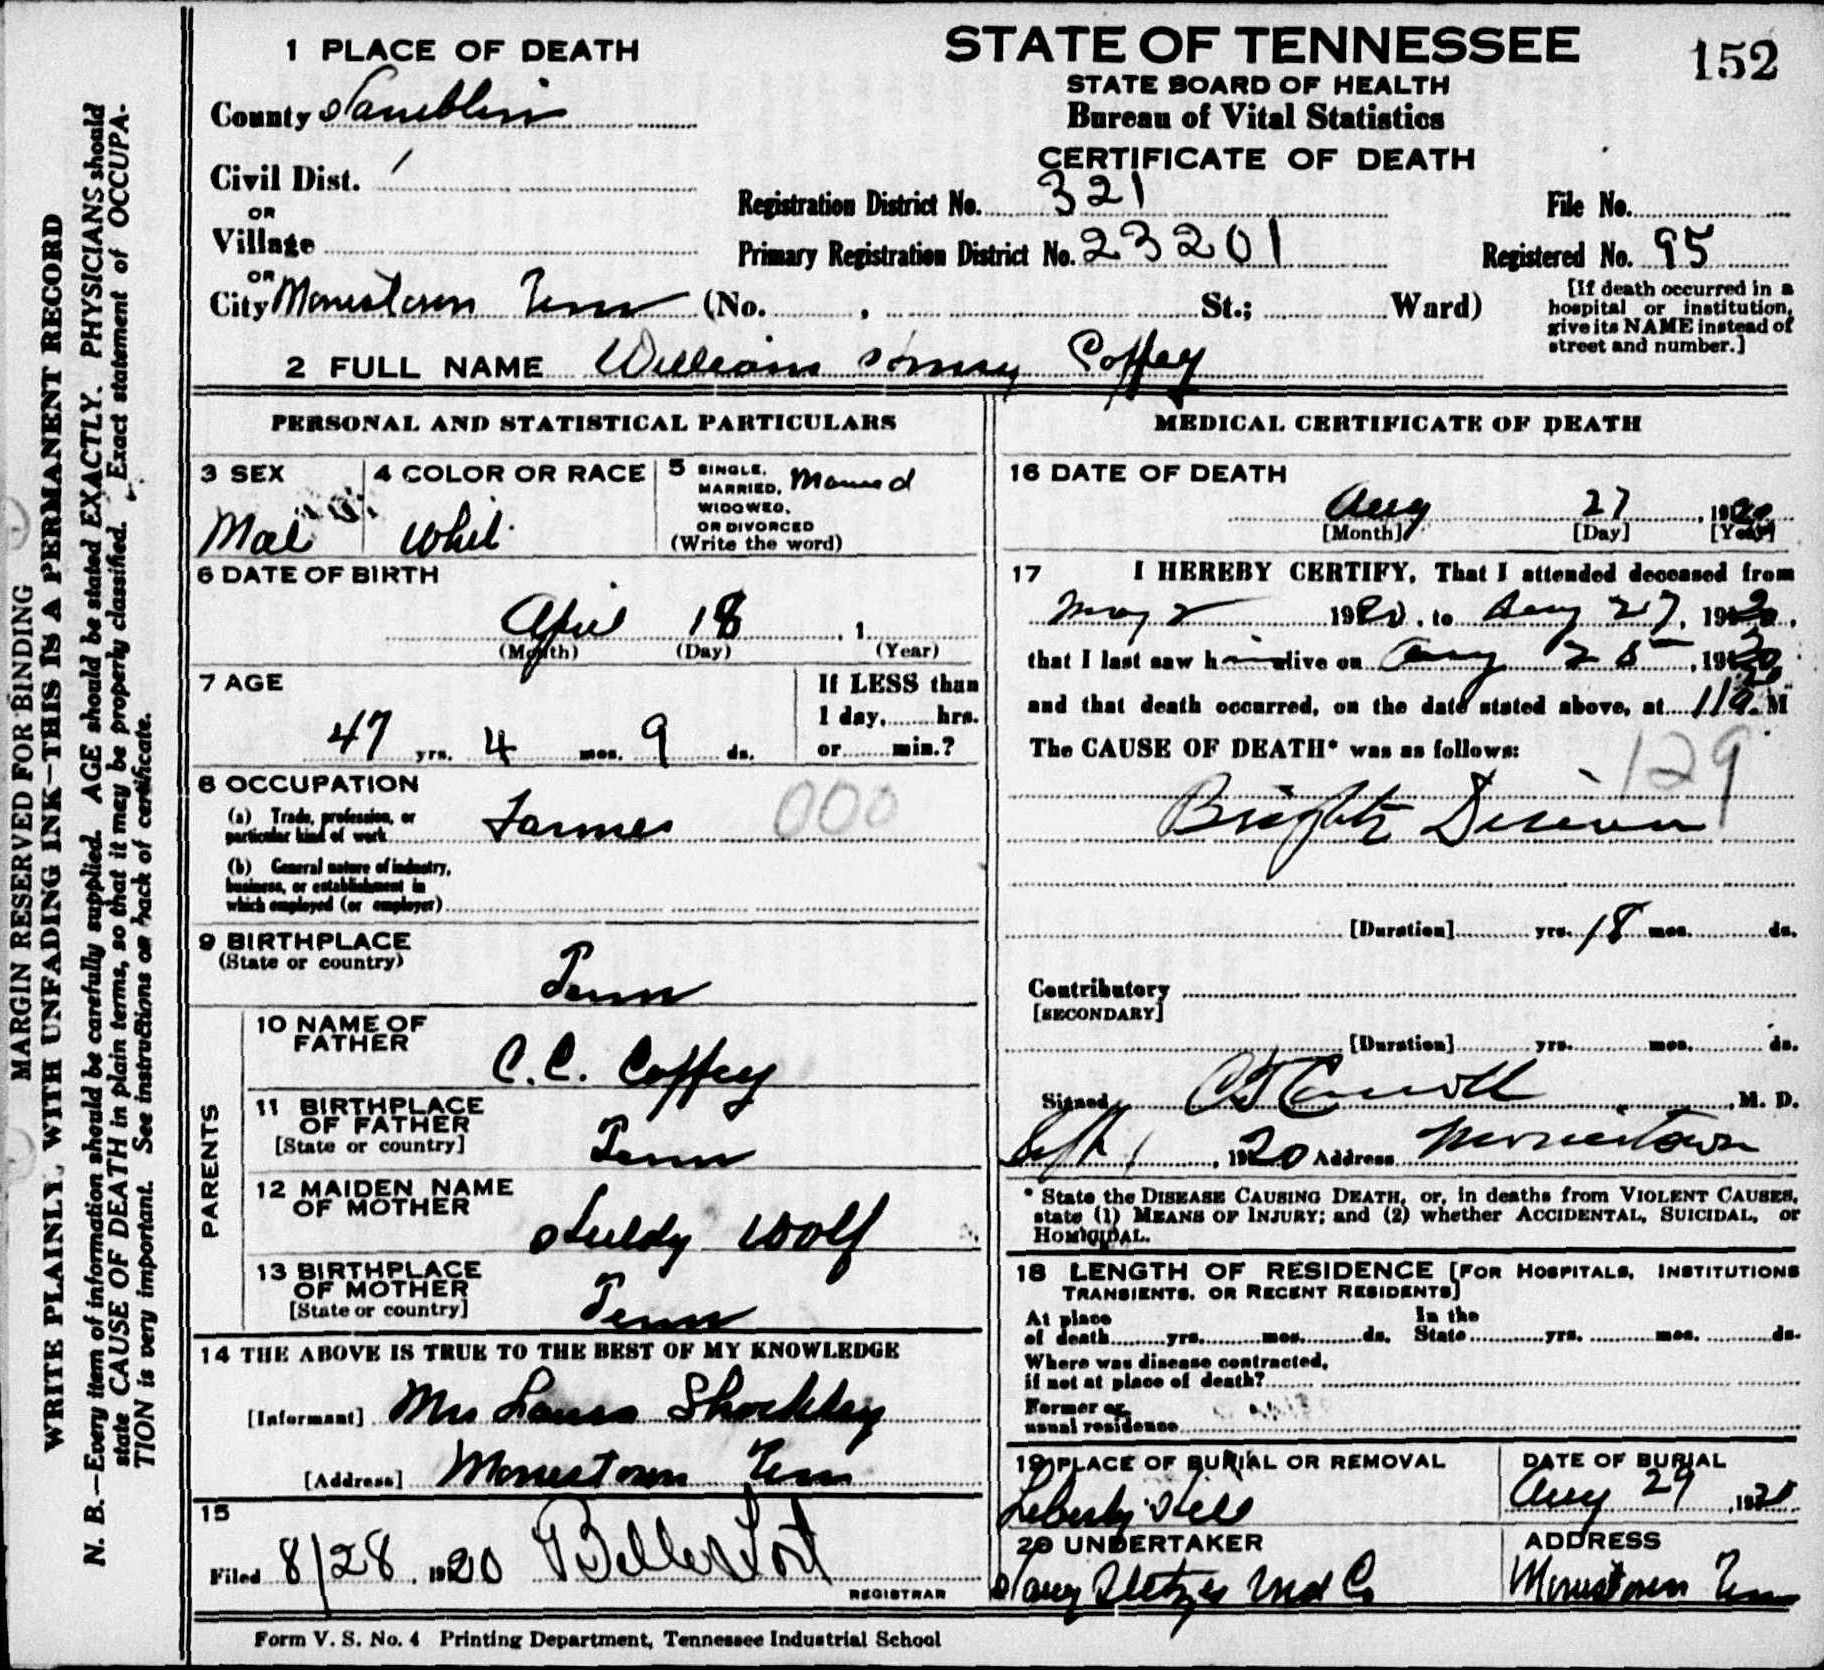 1 PLACE OF DEATH
STATE OF TENNESSEE
152
STATE BOARD OF HEALTH
County Hamblin
Bureau of Vital Statistics
CERTIFICATE OF DEATH
Civil Dist. 1
Registration District No. 321
File No.
OR
Village
Primary Registration District No. 23201
Registered No. 95
OR
City Morristown Tenn (No. , St.; Ward)
[If death occurred in a
hospital or institution,
give its NAME instead of
street and number.]
2 FULL NAME William Henry Coffey
PERSONAL AND STATISTICAL PARTICULARS
3 SEX
Male
4 COLOR OR RACE
White
5 SINGLE,
MARRIED,
WIDOWED,
OR DIVORCED
(Write the word)
Married
6 DATE OF BIRTH
April 18 , 1
(Month) (Day) (Year)
7 AGE
47 yrs. 4 mos. 9 ds.
If LESS than
1 day, hrs.
or min.?
8 OCCUPATION
(a) Trade, profession, or
particular kind of work Farmer
000
(b) General nature of industry,
business, or establishment in
which employed (or employer)
9 BIRTHPLACE
(State or country)
Tenn
PARENTS
10 NAME OF
FATHER
C. C. Coffey
11 BIRTHPLACE
OF FATHER
[State or country]
Tenn
12 MAIDEN NAME
OF MOTHER
Wolf
13 BIRTHPLACE
OF MOTHER
[State or country]
Tenn
14 THE ABOVE IS TRUE TO THE BEST OF MY KNOWLEDGE
[Informant] Mrs Laura Shockley
[Address] Morristown Tenn
15
Filed 8/28, 1920 Belle
REGISTRAR
MEDICAL CERTIFICATE OF DEATH
16 DATE OF DEATH
Aug 27, 1920
[Month] [Day] [Year]
17 I HEREBY CERTIFY, That I attended deceased from
May 2 1920, to Aug 27, 1920,
that I last saw him alive on Aug 25, 1920
and that death occurred, on the date stated above, at M
The CAUSE OF DEATH* was as follows:
129
Brights Disease
[Duration] yrs. 18 mos. ds.
Contributory
[SECONDARY]
[Duration] yrs. mos. ds.
Signed Carroll, M. D.
Sept 1, 1920 Address Morristown
* State the DISEASE CAUSING DEATH, or, in deaths from VIOLENT CAUSES,
state (1) MEANS OF INJURY; and (2) whether ACCIDENTAL, SUICIDAL, or
HOMICIDAL.
18 LENGTH OF RESIDENCE [FOR HOSPITALS, INSTITUTIONS
TRANSIENTS, OR RECENT RESIDENTS]
At place
of death yrs. mos. ds.
In the
State yrs. mos. ds.
Where was disease contracted,
if not at place of death?
Former or
usual residence
19 PLACE OF BURIAL OR REMOVAL
Liberty Hill
DATE OF BURIAL
Aug 29, 1920
20 UNDERTAKER
Und Co
ADDRESS
Morristown Tenn
Form V. S. No. 4 Printing Department, Tennessee Industrial School
MARGIN RESERVED FOR BINDING
WRITE PLAINLY, WITH UNFADING INK—THIS IS A PERMANENT RECORD
N. B.—Every item of information should be carefully supplied. AGE should be stated EXACTLY. PHYSICIANS should
state CAUSE OF DEATH in plain terms, so that it may be properly classified. Exact statement of OCCUPA-
TION is very important. See instructions on back of certificate.